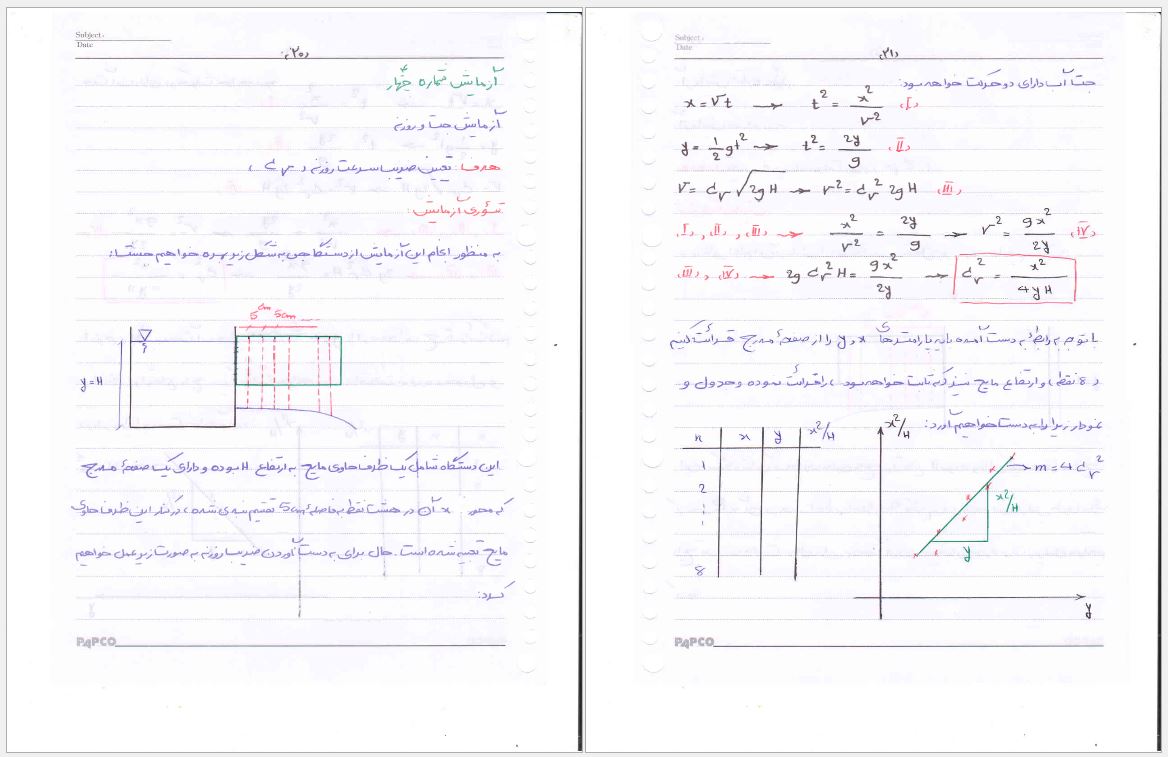 Subject:
Date
(۲۰)
آزمایش شماره چهار
آزمایش جت و روزنه
هدف: تعیین ضریب سرعت روزنه (Cv)
تئوری آزمایش:
به منظور انجام این آزمایش از دستگاهی به شکل زیر بهره خواهیم جست:
5cm 5cm ...
y=H
این دستگاه شامل یک ظرف حاوی مایع به ارتفاع H بوده و دارای یک صفحهٔ مدرج
که محور x آن در هشت نقطه به فاصلهٔ 5cm تقسیم بندی شده، در کنار این ظرف حاوی
مایع تعبیه شده است. حال برای به دست آوردن ضریب روزنه به صورت زیر عمل خواهیم
کرد:
PAPCO
Subject:
Date
(۲۱)
جت آب دارای دو حرکت خواهد بود:
x = Vt → t² = x²/V² (I)
y = 1/2 gt² → t² = 2y/g (II)
V = Cv √2gH → V² = Cv² 2gH (III)
(I), (II), (III) → x²/V² = 2y/g → V² = gx²/2y (IV)
(III), (IV) → 2g Cv² H = gx²/2y → Cv² = x²/4yH
با توجه به رابطهٔ به دست آمده باید پارامترهای x و y را از صفحهٔ مدرج قرائت کنیم
(8 نقطه) و ارتفاع مایع نیز که ثابت خواهد بود، را قرائت نموده و جدول و
نمودار زیر را به دست خواهیم آورد:
n x y x²/H
1
2
8
x²/H
m = 4Cv²
x²/H
y
y
PAPCO